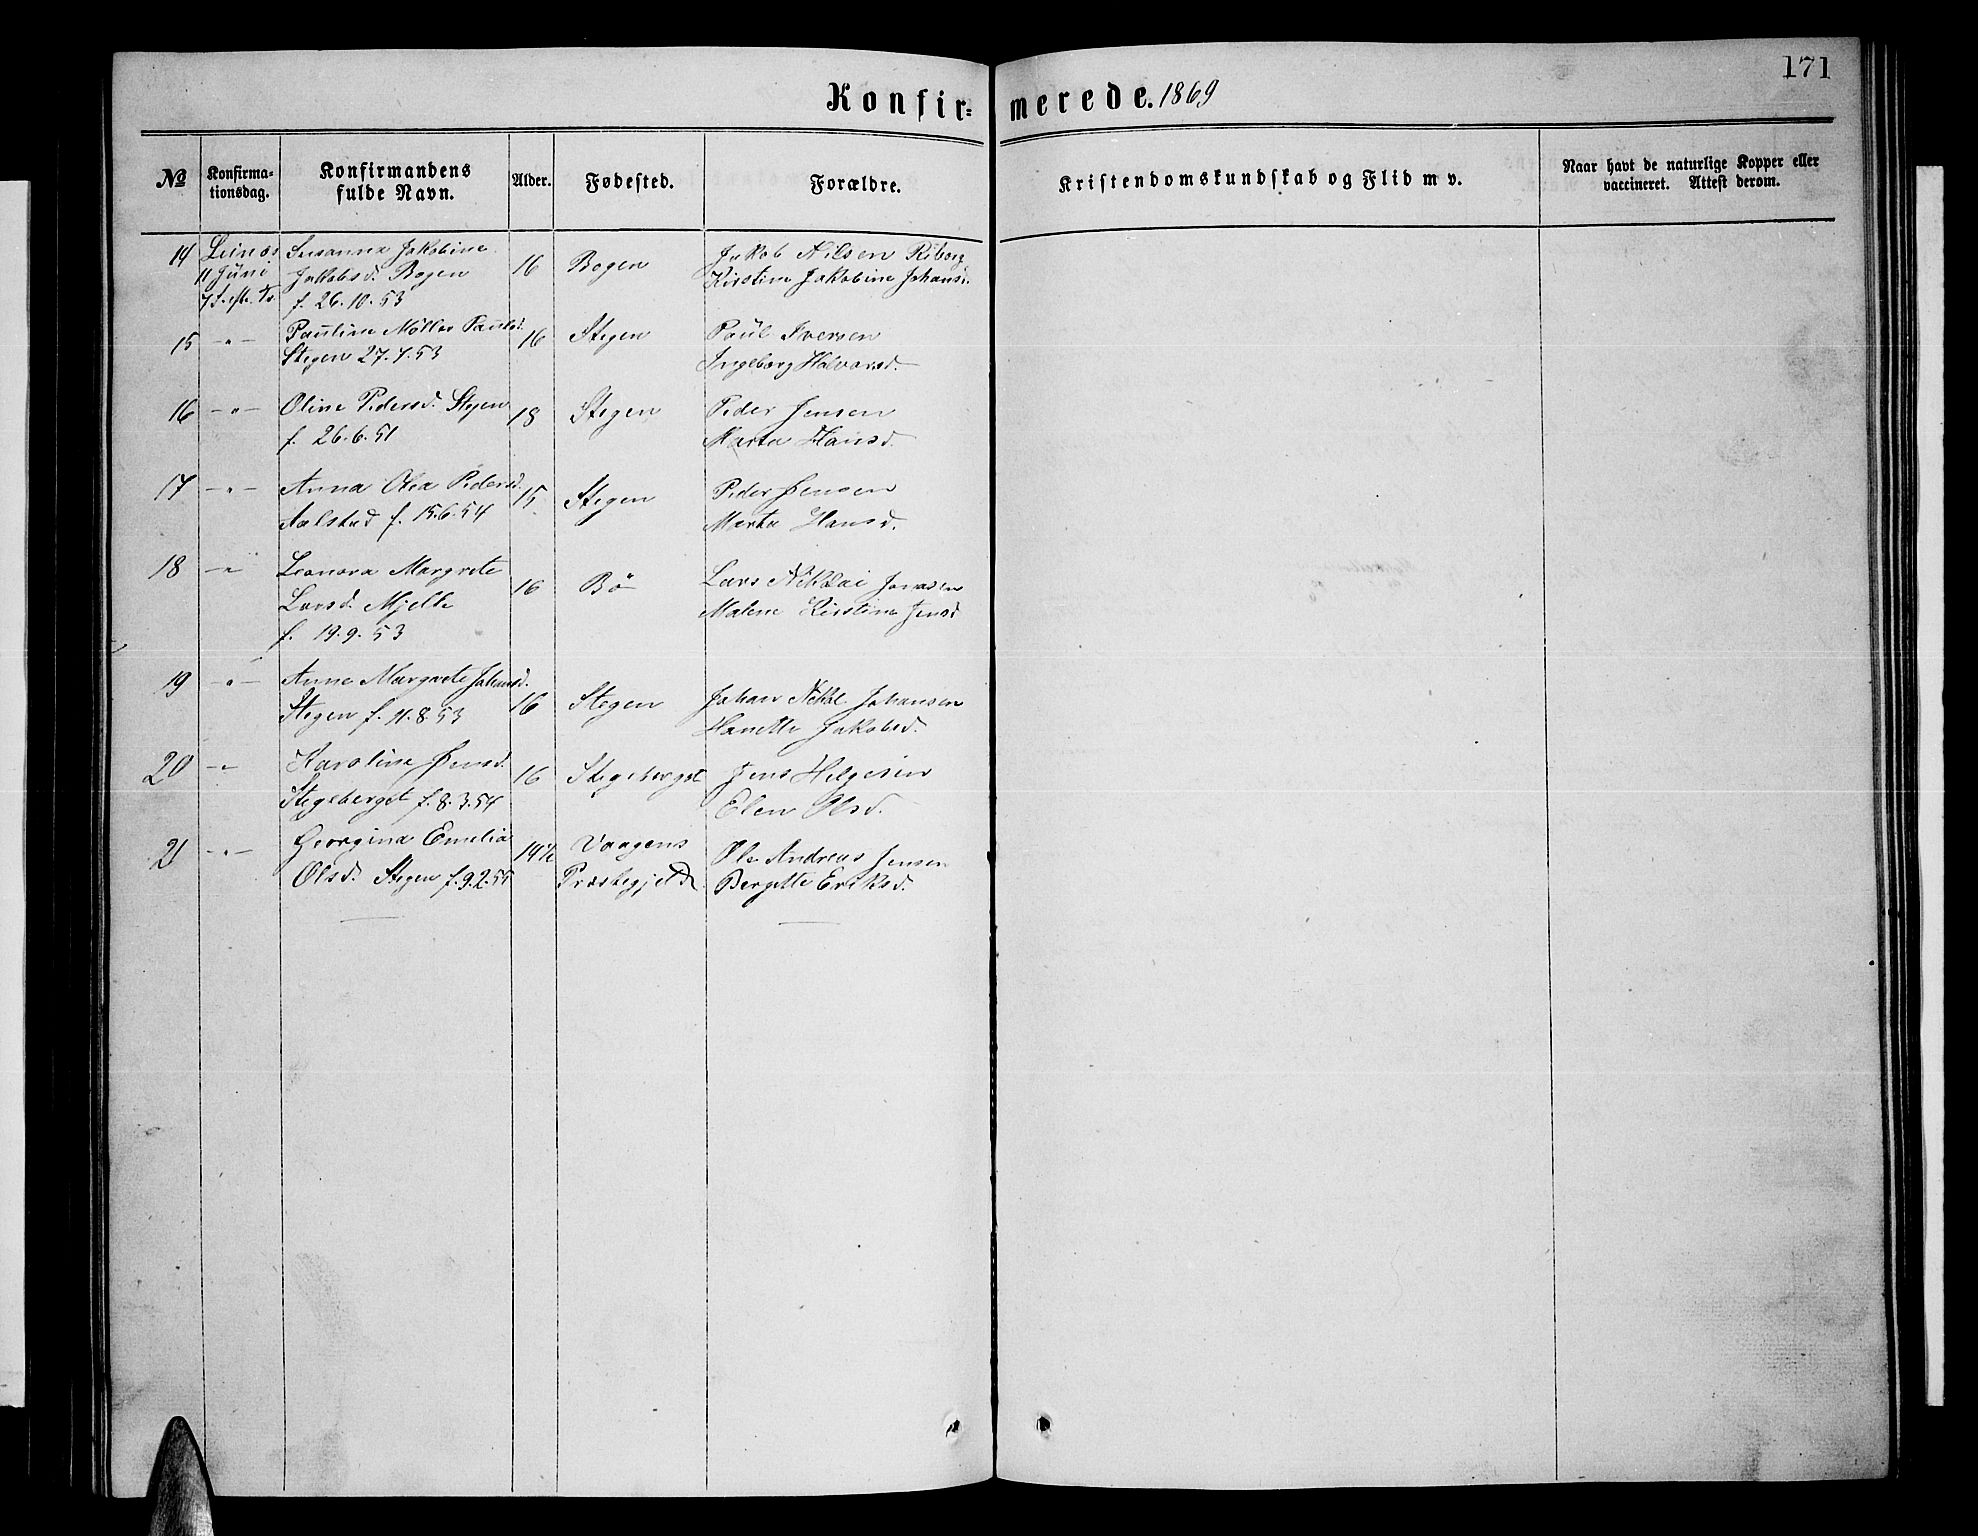 171
Konfir= merede. 1869
No
Konfirma-
tionsdag.
Konfirmandens
fulde Navn.
Alder.
Fødested.
Forældre.
Kristendomskundskab og Flid m v.
Naar havt de naturlige Kopper eller
vaccineret. Attest derom.
14 Leines Susanna Jakobine 16 Bogen Jakob Nilsen Riborg
11 Juni Jakobsd. Bogen Kirstine Jakobine Johansd.
f. 26.10.53
15 -"- Pauline Möller Paulsd. 16 Stegen Paul Iversen
Stegen 27.7.53 Ingeborg Halvorsd.
16 -"- Oline Pedersd. Stegen 18 Stegen Peder Jensen
f. 26.6.51 Marta Hansd.
17 -"- Anna Olea Pedersd. 15 Stegen Peder Jensen
Aalstad f. 15.6.54 Marta Hansd.
18 -"- Leonora Margrete 16 Bö Lars Nikolai Jonasen
Larsd. Mjelle Malene Kirstine Jensd
f. 19.9.53
19 -"- Anne Margrete Johansd. 16 Stegen Johan Nikol Johansen
Stegen f. 11.8.53 Hanette Jakobsd.
20 -"- Karoline Jensd. 16 Stegeberget Jens Helgesen
Stegeberget f. 8.3.54 Elen Olsd.
21 -"- Georgina Emelia 14½ Vaagens Ole Andreas Jensen
Olsd. Stegen f. 9.2.55 Præstegjeld Bergette Eriksd.